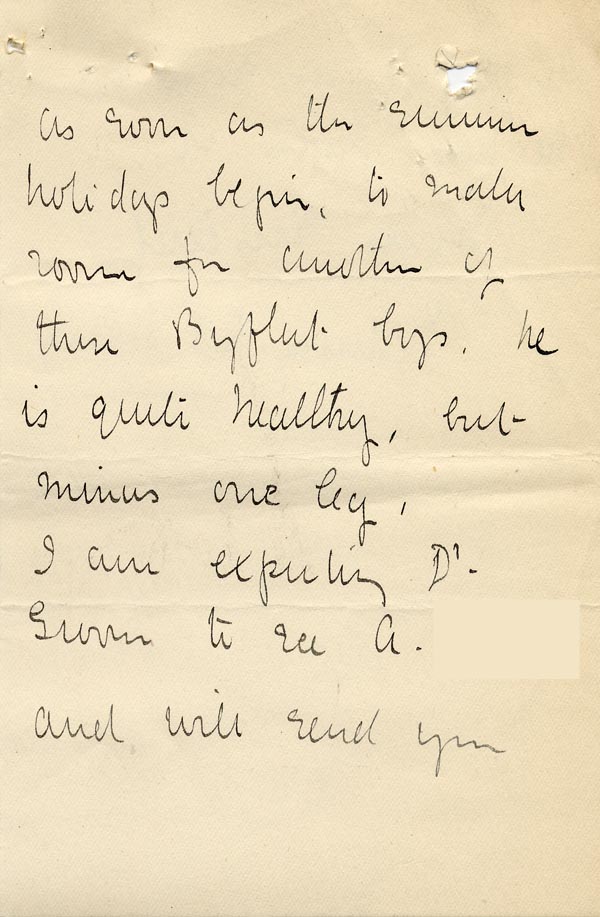 as soon as the summer
holidays begin, to make
room for another of
these Byfleet boys. he
is quite healthy, but
minus one leg,
I am expecting Dr.
to see A.
and will send you